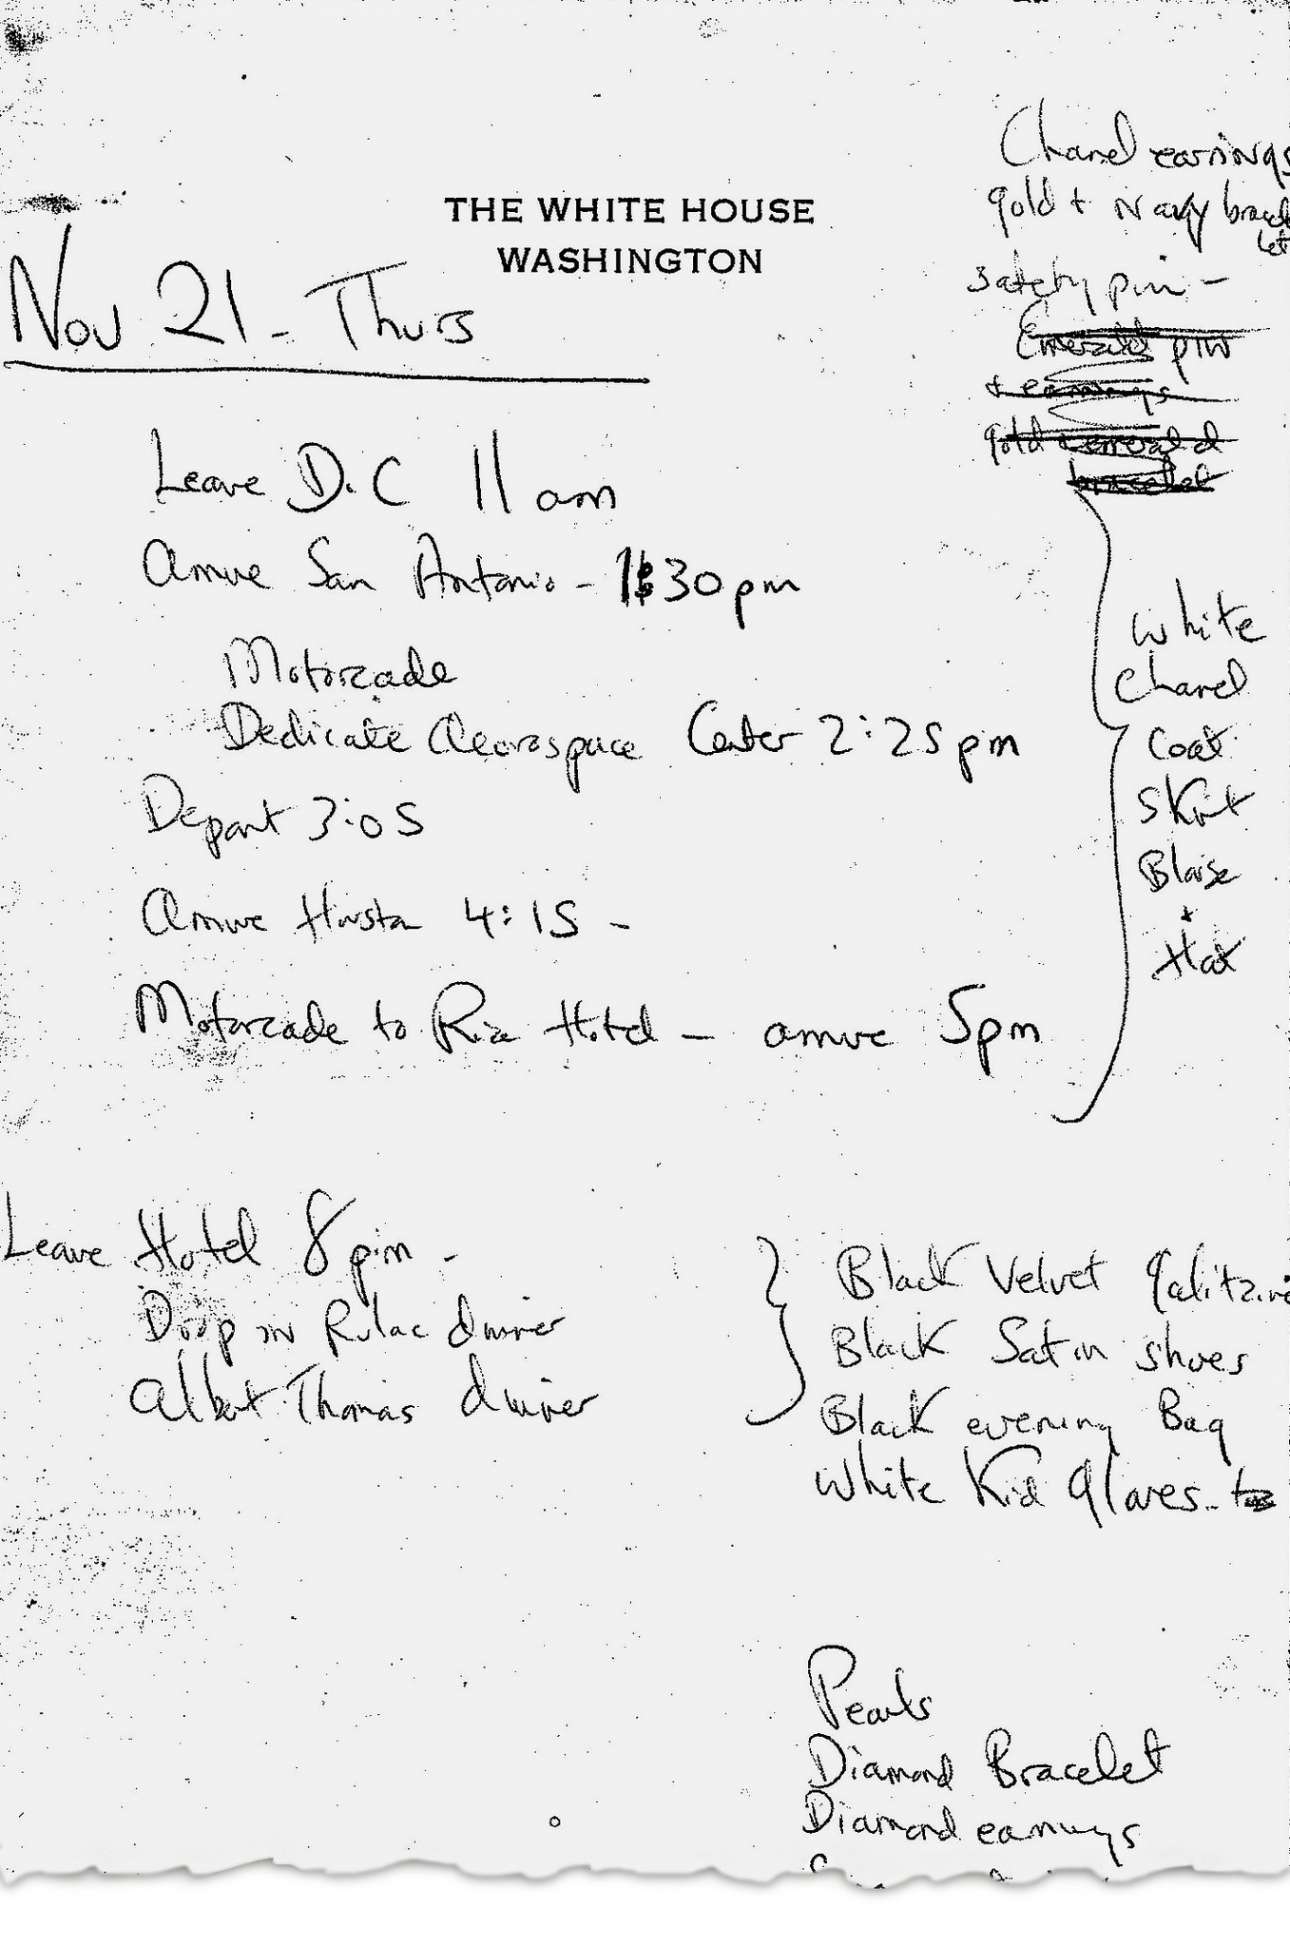 THE WHITE HOUSE
WASHINGTON
Chanel earrings
gold + Navy brace
let
safety pin -
Emerald pin
+ earrings
gold + emerald
bracelet
Nov 21 - Thurs
Leave D.C 11 am
Arrive San Antonio - 1:30 pm
Motorcade
Dedicate Aeorospace Center 2:25 pm
Depart 3:05
Arrive Houston 4:15 -
Motorcade to Rice Hotel - arrive 5pm
White
Chanel
Coat
Skirt
Blouse
+
Hat
Leave Hotel 8 pm -
Drop in Rulac dinner
Albert Thomas dinner
Black Velvet galitzine
Black Satin shoes
Black evening Bag
White Kid gloves -
Pearls
Diamond Bracelet
Diamond earrings